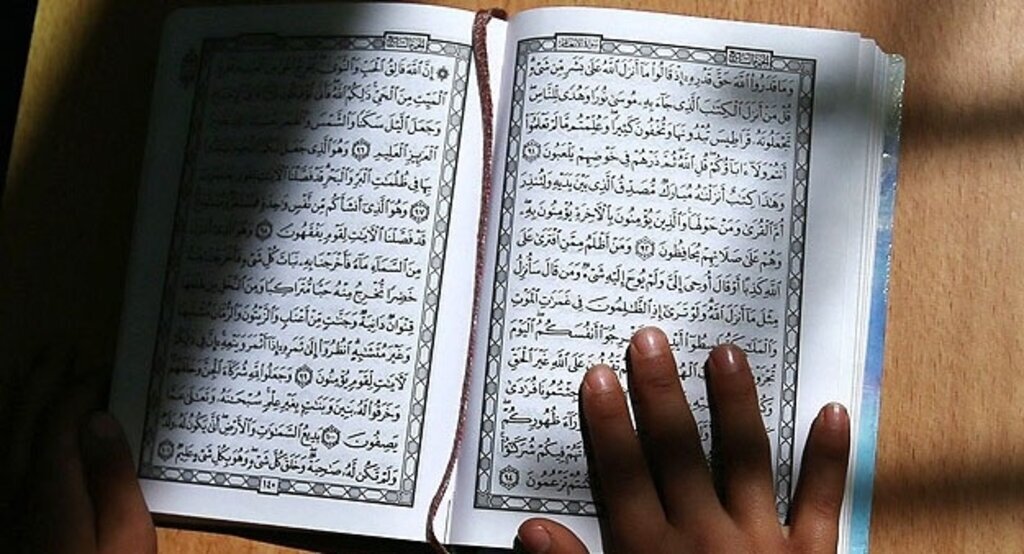 الجزء السابع
سورة الأنعام
وَمَا قَدَرُوا اللَّهَ حَقَّ قَدْرِهِ إِذْ قَالُوا مَا أَنزَلَ اللَّهُ عَلَىٰ بَشَرٍ مِّن شَيْءٍ
قُلْ مَنْ أَنزَلَ الْكِتَٰبَ الَّذِي جَاءَ بِهِ مُوسَىٰ نُورًا وَهُدًى لِّلنَّاسِ
تَجْعَلُونَهُ قَرَاطِيسَ تُبْدُونَهَا وَتُخْفُونَ كَثِيرًا وَعُلِّمْتُم مَّا لَمْ تَعْلَمُوا
أَنتُمْ وَلَا ءَابَاؤُكُمْ قُلِ اللَّهُ ثُمَّ ذَرْهُمْ فِي خَوْضِهِمْ يَلْعَبُونَ ٩١
وَهَٰذَا كِتَٰبٌ أَنزَلْنَٰهُ مُبَارَكٌ مُّصَدِّقُ الَّذِي بَيْنَ يَدَيْهِ وَلِتُنذِرَ
أُمَّ الْقُرَىٰ وَمَنْ حَوْلَهَا وَالَّذِينَ يُؤْمِنُونَ بِالْءَاخِرَةِ يُؤْمِنُونَ بِهِ
وَهُمْ عَلَىٰ صَلَاتِهِمْ يُحَافِظُونَ ٩٢ وَمَنْ أَظْلَمُ مِمَّنِ افْتَرَىٰ عَلَى
اللَّهِ كَذِبًا أَوْ قَالَ أُوحِيَ إِلَيَّ وَلَمْ يُوحَ إِلَيْهِ شَيْءٌ وَمَن قَالَ سَأُنزِلُ
مِثْلَ مَا أَنزَلَ اللَّهُ وَلَوْ تَرَىٰ إِذِ الظَّٰلِمُونَ فِي غَمَرَٰتِ الْمَوْتِ
وَالْمَلَٰئِكَةُ بَاسِطُوا أَنفُسَكُمُ الْيَوْمَ
تُجْزَوْنَ عَلَى اللَّهِ غَيْرَ الْحَقِّ
جِئْتُمُونَا فُرَٰدَىٰ
وَرَاءَ ظُهُورِكُمْ
فِيكُمْ شُرَكَٰؤُا
تَزْعُمُونَ ٩٤
الجزء السابع
إِنَّ اللَّهَ فَالِقُ الْحَبِّ وَالنَّوَىٰ يُخْرِجُ الْحَيَّ مِنَ الْمَيِّتِ وَمُخْرِجُ
الْمَيِّتِ مِنَ الْحَيِّ ذَٰلِكُمُ اللَّهُ فَأَنَّىٰ تُؤْفَكُونَ ٩٥ فَالِقُ الْإِصْبَاحِ
وَجَعَلَ الَّيْلَ سَكَنًا وَالشَّمْسَ وَالْقَمَرَ حُسْبَانًا ذَٰلِكَ تَقْدِيرُ
الْعَزِيزِ الْعَلِيمِ ٩٦ وَهُوَ الَّذِي جَعَلَ لَكُمُ النُّجُومَ لِتَهْتَدُوا
بِهَا فِي ظُلُمَٰتِ الْبَرِّ وَالْبَحْرِ قَدْ فَصَّلْنَا الْءَايَٰتِ لِقَوْمٍ يَعْلَمُونَ
٩٧ وَهُوَ الَّذِي أَنشَأَكُم مِّن نَّفْسٍ وَٰحِدَةٍ فَمُسْتَقَرٌّ وَمُسْتَوْدَعٌ
قَدْ فَصَّلْنَا الْءَايَٰتِ لِقَوْمٍ يَفْقَهُونَ ٩٨ وَهُوَ الَّذِي أَنزَلَ
مِنَ السَّمَاءِ مَاءً فَأَخْرَجْنَا بِهِ نَبَاتَ كُلِّ شَيْءٍ فَأَخْرَجْنَا مِنْهُ
خَضِرًا نُّخْرِجُ مِنْهُ حَبًّا مُّتَرَاكِبًا وَمِنَ النَّخْلِ مِن طَلْعِهَا
قِنْوَانٌ دَانِيَةٌ وَجَنَّٰتٍ مِّنْ أَعْنَابٍ وَالزَّيْتُونَ وَالرُّمَّانَ مُشْتَبِهًا
وَغَيْرَ مُتَشَٰبِهٍ انظُرُوا إِلَىٰ ثَمَرِهِ إِذَا أَثْمَرَ وَيَنْعِهِ إِنَّ فِي ذَٰلِكُمْ
لَءَايَٰتٍ لِّقَوْمٍ يُؤْمِنُونَ ٩٩ وَجَعَلُوا لِلَّهِ شُرَكَاءَ الْجِنَّ وَخَلَقَهُمْ
وَخَرَقُوا لَهُ بَنِينَ وَبَنَٰتٍ بِغَيْرِ عِلْمٍ سُبْحَٰنَهُ وَتَعَٰلَىٰ عَمَّا
يَصِفُونَ ١٠٠ بَدِيعُ السَّمَٰوَٰتِ وَالْأَرْضِ أَنَّىٰ يَكُونُ لَهُ وَلَدٌ
وَلَمْ تَكُن لَّهُ صَٰحِبَةٌ وَخَلَقَ كُلَّ شَيْءٍ وَهُوَ بِكُلِّ شَيْءٍ عَلِيمٌ ١٠١
١٤٠